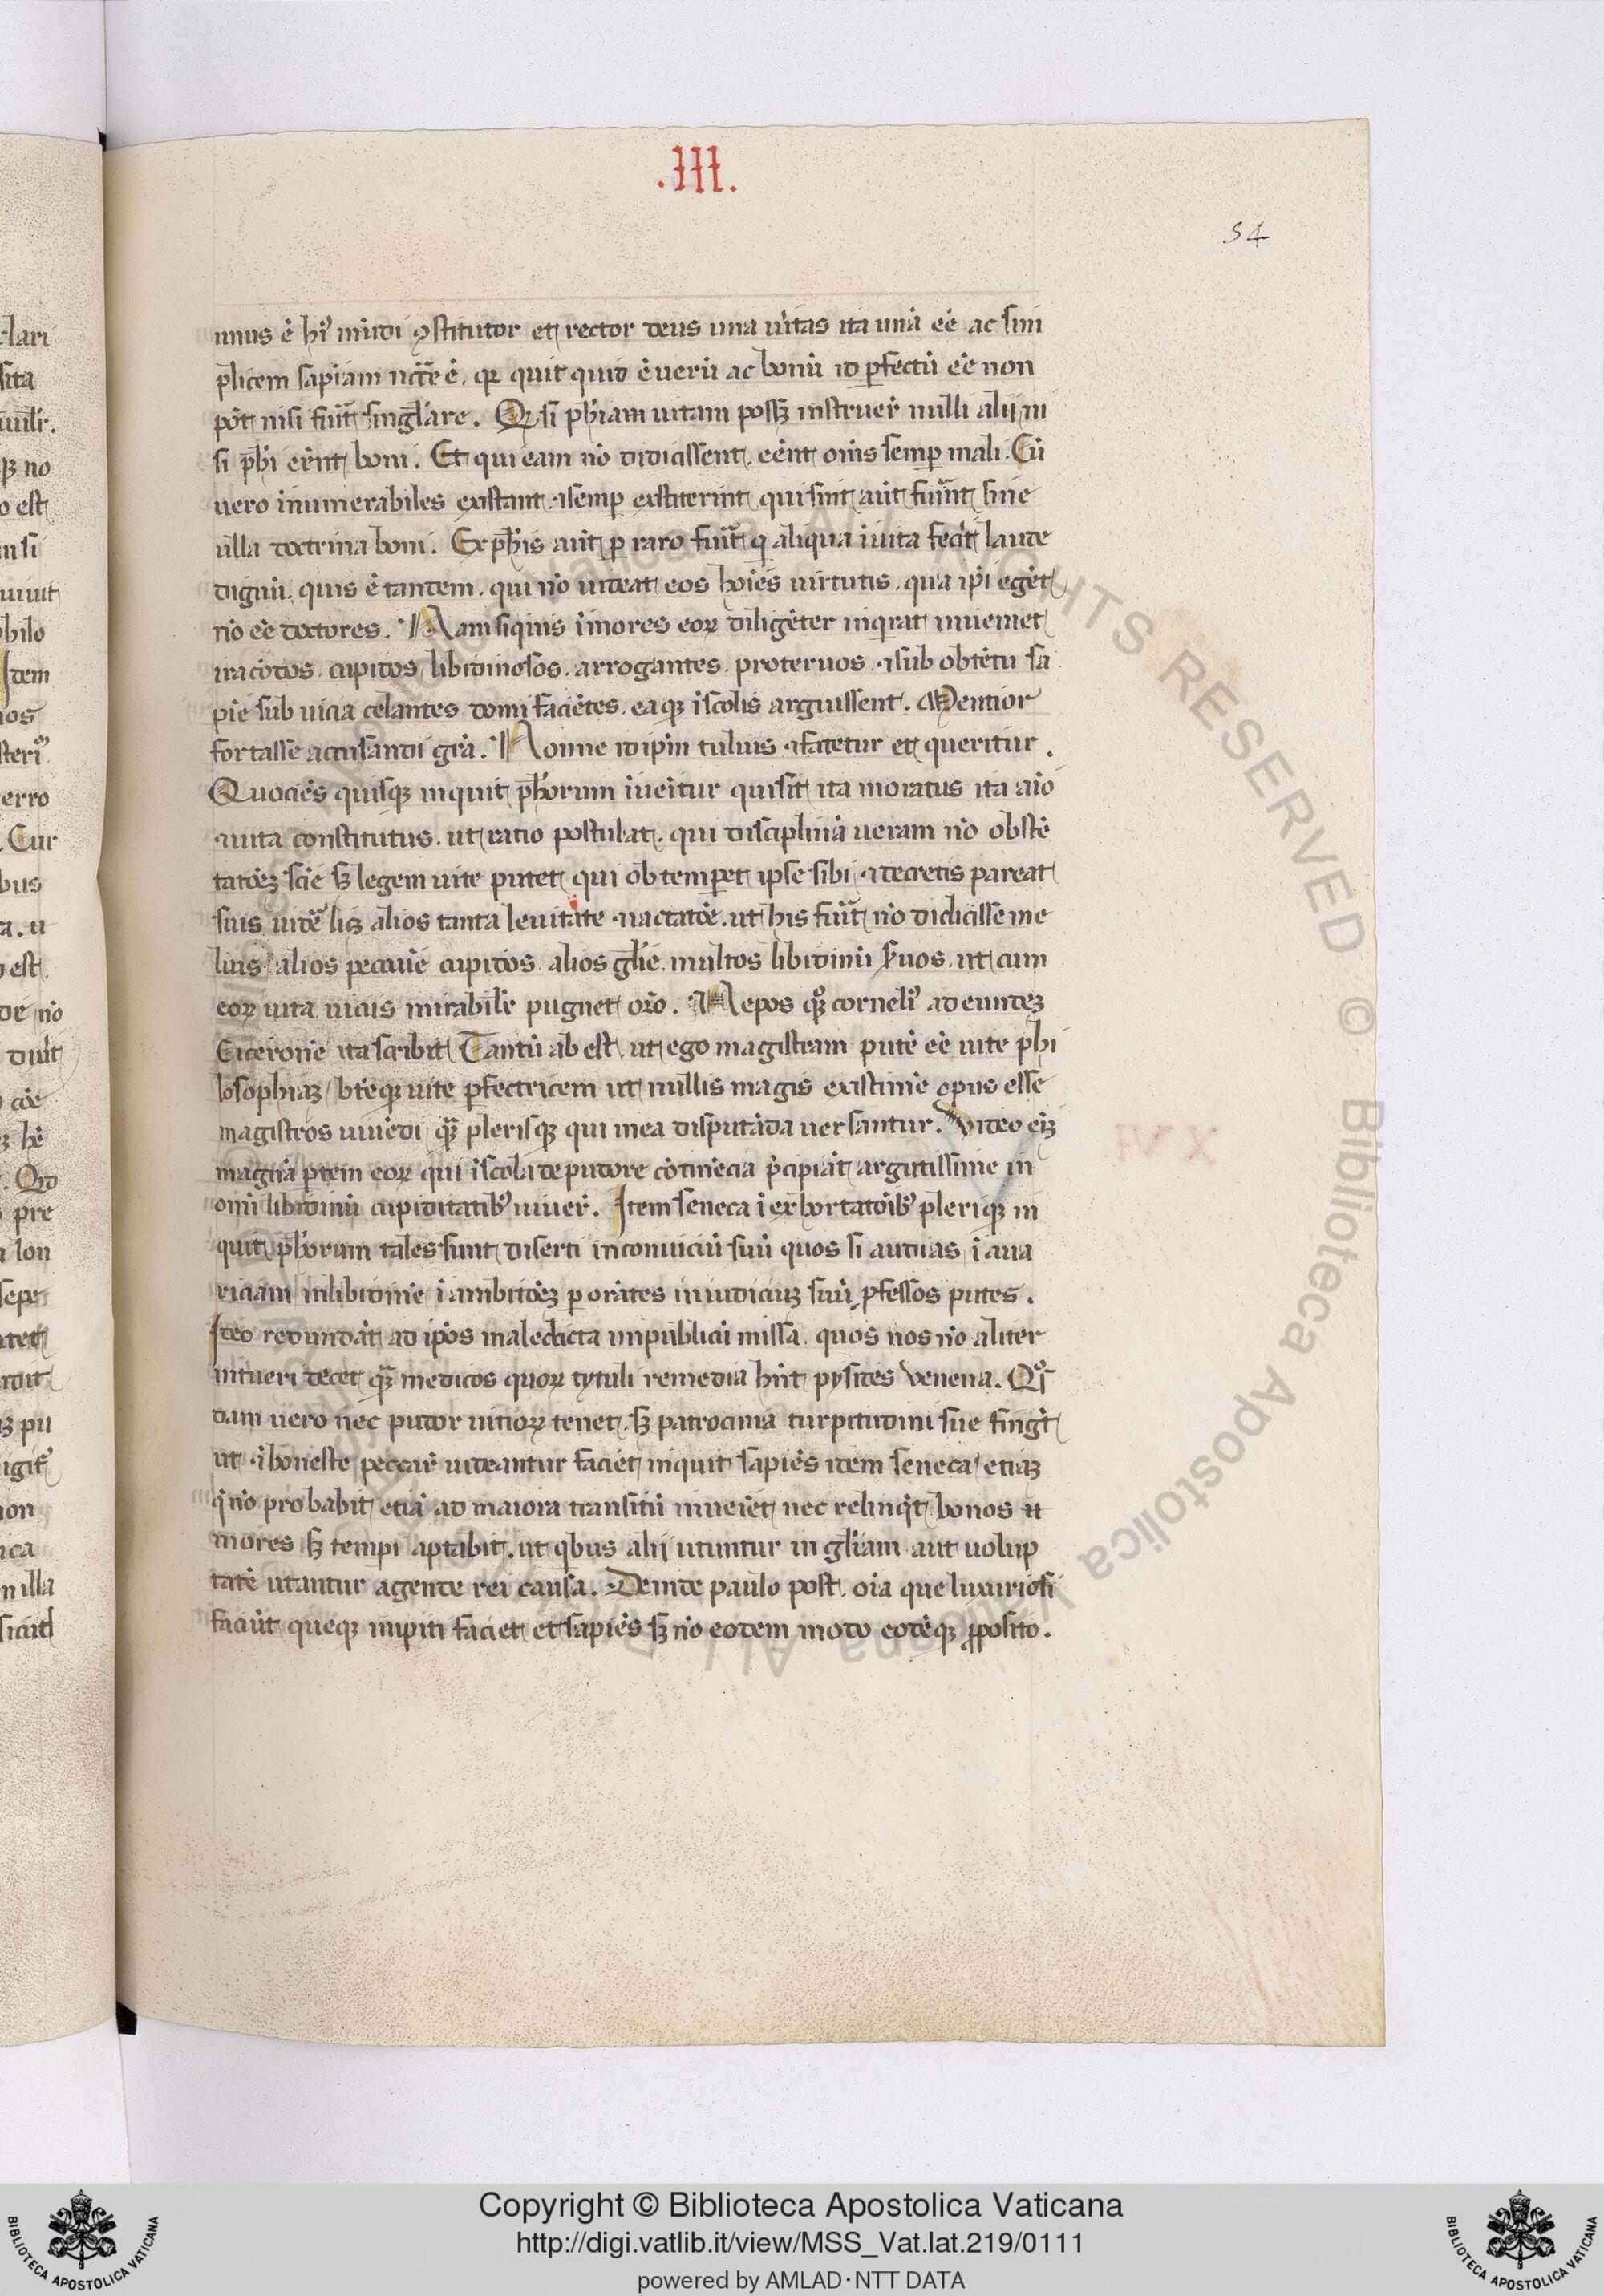 .III.
54
unus ē hui9 mūdi ꝯstitutor et rector deus una uītas ita unā eē ac sim
plicem sapīam nccē ē. qꝛ quit quid ē uerū ac bonū id ꝑfectū eē non
pōt nisi fuīt singlāre. Qđ si phīam uitam possꝫ instruere nulli alij ni
si phī eēnt boni. Et qui eam nō didicissent. eēnt omīs semꝑ mali. Cū
uero inumerabiles existant ⁊ semꝑ extiterint qui sint aūt fuīnt sine
ulla doctrina boni. Ex phīs aūt ꝑ raro fuīt q aliqua ī uita fecīt laude
dignū. quis ē tandem. qui nō uideat eos hoīēs uirtutis. qua ipī egēt
nō eē doctores. Nam siquis ī mores eoꝝ diligēter inqrat inueniet
iracōdos. cupidos libidinosos. arrogantes. proteruos. ⁊ sub obtētu sa
pīe sub uicia celantes domi faciētes. ea qꝫ ī scolis arguissent. Mentior
fortasse accusandi grā. Nonne id ipm tulius ⁊ fatetur et queritur.
Quociēs quisqꝫ inquit phōrum īueītur qui sit ita moratus ita aīo
⁊ uita constitutus. ut ratio postulat. qui disciplinā ueram nō obstē
tatōeꝫ scīe sꝫ legem uite putet qui obtemꝑet ipse sibi ⁊ decretis pareat
suis uidē lꝫ alios tanta leuitate ⁊ iactatōe. ut his fuīt nō didicisse me
lius alios peccuīe cupidos alios glīe. multos libidinū ẜuos. ut cum
eoꝝ uita uicus mirabilr̄ pugnet orō. Nepos qº corneli9 ad eundeꝫ
Ciceronē ita scribit Tantū ab est. ut ego magistram putē eē uite phi
losophiaꝫ btēqꝫ uite ꝑfectricem ut nullis magis existimē opus esse
magistros uiuēdi qꝫ̄ plerisqꝫ qui in ea disputāda uersantur. Video eīꝫ
magnā ꝑtem eoꝝ qui ī scola de pudore cōtinēcia p̄cipiāt argutissime in
oīū libidinū cupiditatib9 uiuere. Item seneca ī exhortatōib9 pleriqꝫ in
quit phōrum tales sunt diserti in conuiciū suū quos si audias ī aua
riciam in libidinē ī ambitōeꝫ ꝑorātes in iudiciuꝫ suū ꝓfessos putes.
Ideo redundāt ad ipōs maledicta in publicū missa. quos nos nō aliter
intueri decet qꝫ̄ medicos quoꝝ tytuli remedia hnt pysides venena. Qºs
dam uero nec pudor uitioꝝ tenet. sꝫ patrocinia turpitudini sue fingūt
ut ⁊ honeste peccare uideantur faciet inquit sapiēs idem seneca etiaꝫ
q̄ nō probabit etiā ad maiora transitū inueiēt nec relinqt bonos
mores sꝫ tempi aptabit. ut qbus alij utuntur in glīam aut uolup
tatē utantur agende rei causa. Deinde paulo post. oīa que luxuriosi
faciūt queqꝫ impiti faciet et sapiēs sꝫ nō eodem modo eodēqꝫ ꝓposito.
Copyright © Biblioteca Apostolica Vaticana
http://digi.vatlib.it/view/MSS_Vat.lat.219/0111
powered by AMLAD·NTT DATA